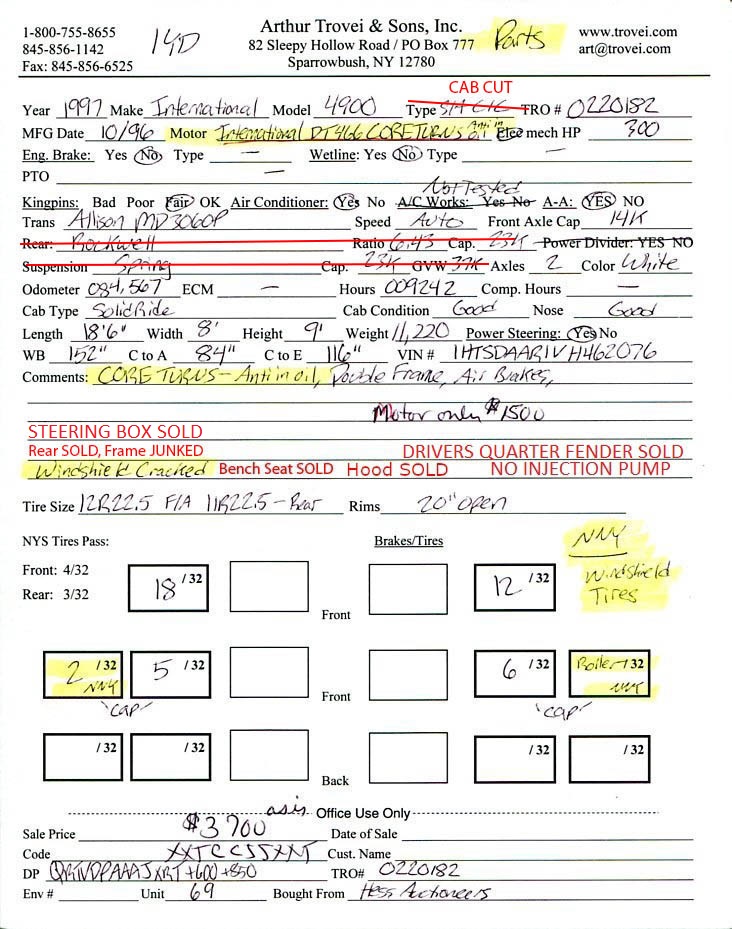 1-800-755-8655 Arthur Trovei & Sons, Inc. www.trovei.com
845-856-1142 14D 82 Sleepy Hollow Road / PO Box 777 Parts art@trovei.com
Fax: 845-856-6525 Sparrowbush, NY 12780
CAB CUT
Year 1997 Make International Model 4900 Type TRO # 0220182
MFG Date 10/96 Motor International DT466 CORE TURNS Anti in oil Elec mech HP 300
Eng. Brake: Yes No Type — Wetline: Yes No Type —
PTO —
Not Tested
Kingpins: Bad Poor Fair OK Air Conditioner: Yes No A/C Works: Yes No A-A: YES NO
Trans Allison MD3060P Speed Auto Front Axle Cap 14K
Rear: Rockwell Ratio 6.43 Cap. 23K Power Divider: YES NO
Suspension Spring Cap. 23K GVW 37K Axles 2 Color White
Odometer 084,567 ECM — Hours 009242 Comp. Hours —
Cab Type Solid Ride Cab Condition Good Nose Good
Length 18'6" Width 8' Height 9' Weight 11,220 Power Steering: Yes No
WB 152" C to A 84" C to E 116" VIN # 1HTSDAAR1VH462076
Comments: CORE TURNS - Anti in oil, Double Frame, Air Brakes,
Motor only $1500
STEERING BOX SOLD
Rear SOLD, Frame JUNKED DRIVERS QUARTER FENDER SOLD
Windshield Cracked Bench Seat SOLD Hood SOLD NO INJECTION PUMP
Tire Size 12R22.5 F/A 11R22.5 - Rear Rims 20" open
NYS Tires Pass: Brakes/Tires NNY
Front: 4/32 18 /32 12 /32 Windshield
Rear: 3/32 Tires
Front
2 /32 5 /32 6 /32 Boiler /32
NNY Front NNY
"CAP" "CAP"
/32 /32 /32 /32
Back
asis Office Use Only
Sale Price $3700 Date of Sale
Code XXTCCSSXNT Cust. Name
DP QRTVDPAAAJXRT +600 +850 TRO# 0220182
Env # Unit 69 Bought From Hess Auctioneers